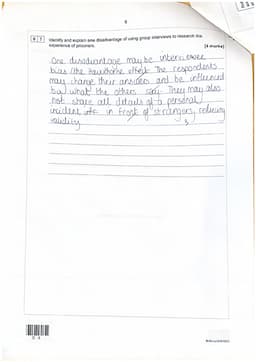 8
0 7 Identify and explain one disadvantage of using group interviews to research the
experience of prisoners.
[4 marks]
One disadvantage may be interviewer
bias / the hawthorne effect. The respondents
may change their answers and be influenced
by what the others say. They may also
not share all details of a personal
incident in front of strangers, reducing
validity.